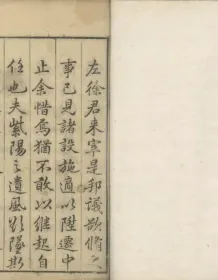 左徐君来宰是邦議欲脩之
事已見諸設施適以陞遷中
止余惜焉猶不敢以继起自
任也夫紫陽之遺風欲墜斯